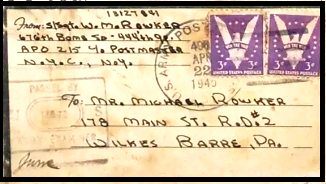 18127841
From: S/Sgt W. M. Rowker
676th Bomb Sq - 444th Gp.
APO 215 % Postmaster
N.Y.C., N.Y.
U.S. ARMY POST
APR
22
1945
WIN THE WAR
UNITED STATES POSTAGE
3¢ 3¢
WIN THE WAR
UNITED STATES POSTAGE
3¢ 3¢
PASSED BY
To: Mr. Michael Rowker
178 Main St. R.D.#2
Wilkes Barre, Pa.